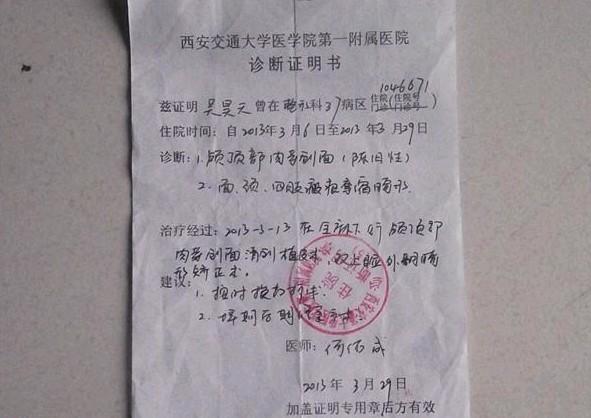 西安交通大学医学院第一附属医院
诊断证明书
1046671
兹证明 吴昊天 曾在 整形科 37 病区 住院(住院号
门诊(门诊号)
住院时间：自2013年3月6日至2013年3月29日
诊断：1.颅顶部肉芽创面(陈旧性)
2.面、颈、四肢瘢痕挛缩畸形
治疗经过：2013-3-13 在全麻下行颅顶部
肉芽创面清创植皮术，双上睑外翻畸
形矫正术.
建议：1.按时换药
2.择期后期
医师：
2013年3月29日
加盖证明专用章后方有效